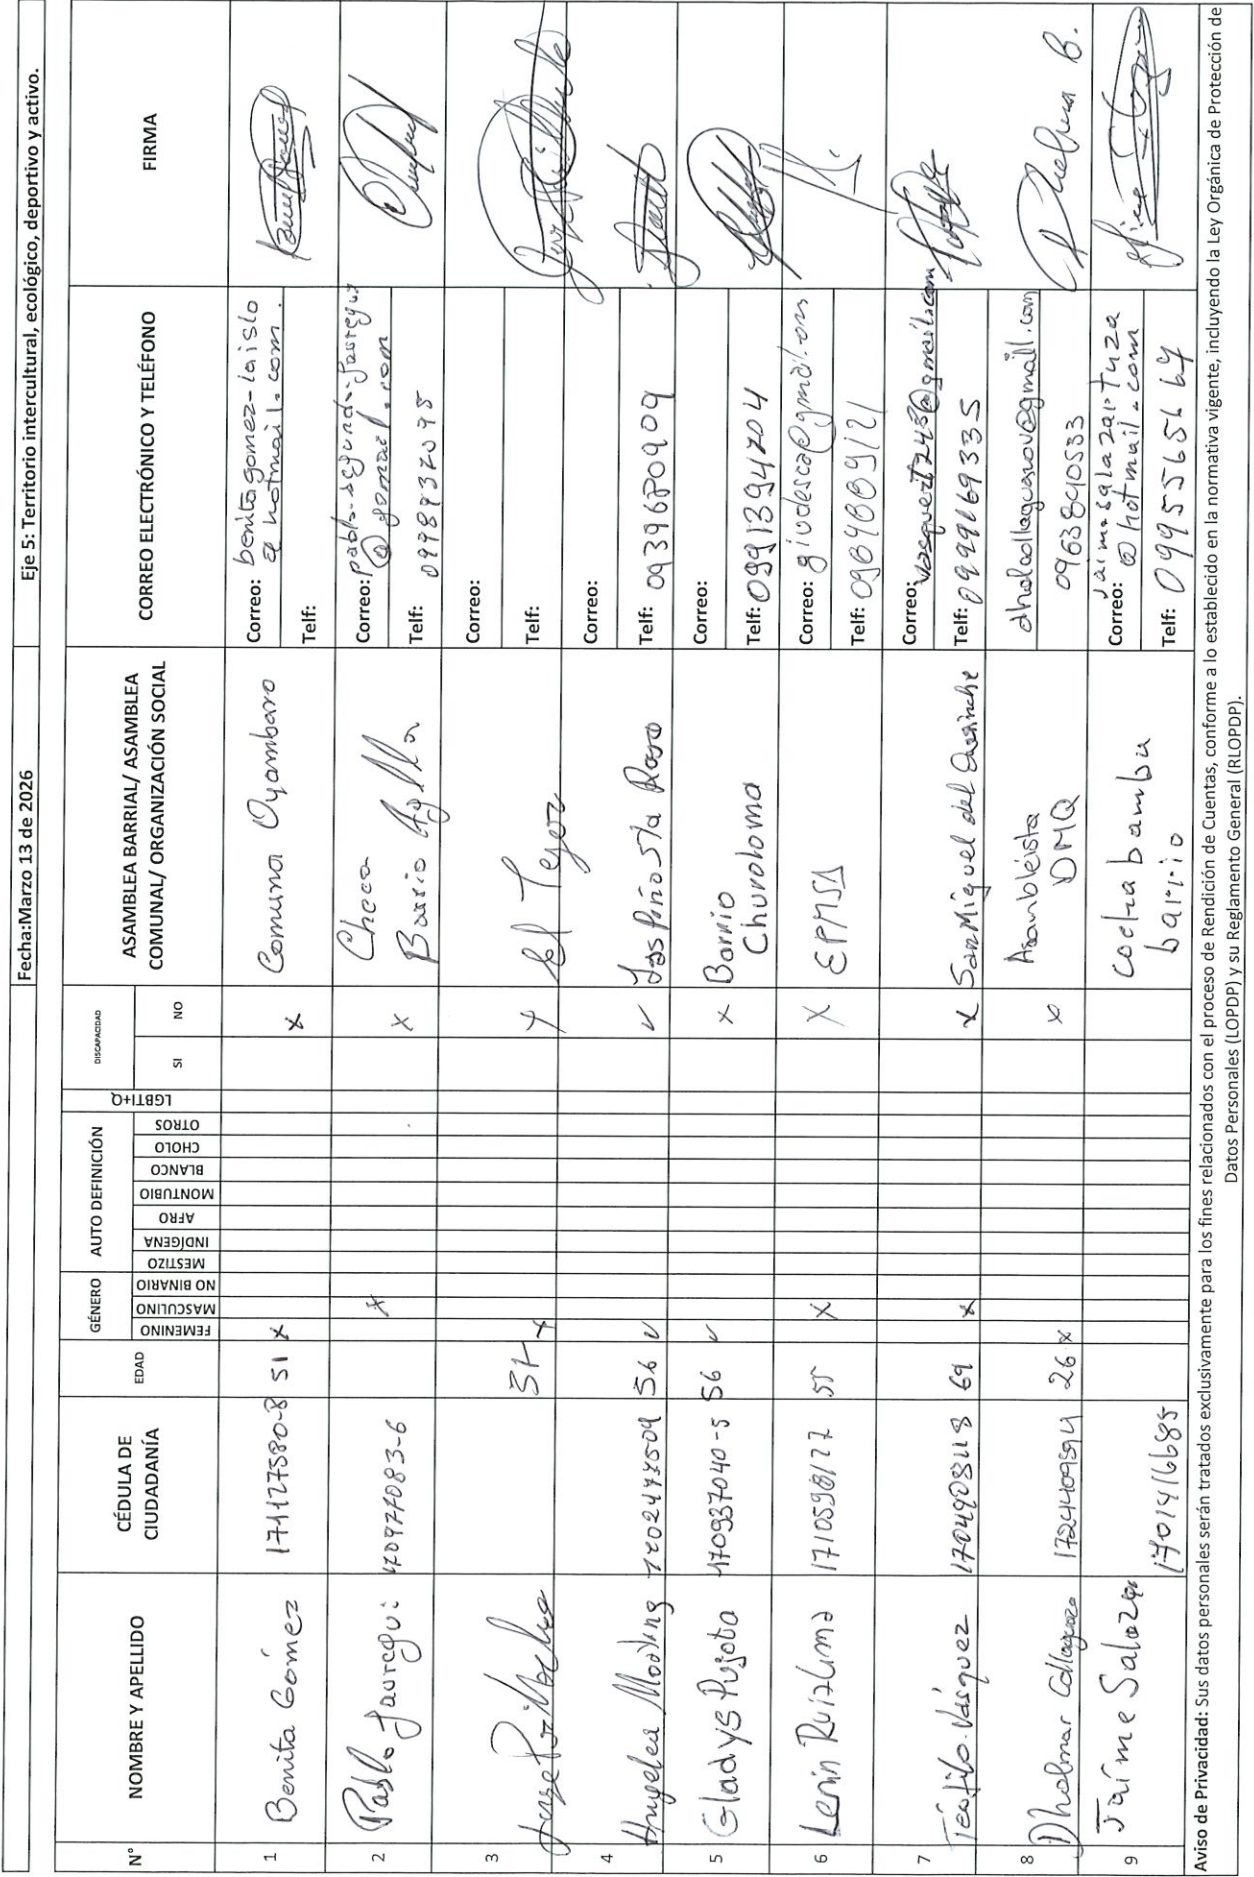 Fecha:Marzo 13 de 2026
Eje 5: Territorio intercultural, ecológico, deportivo y activo.
N°
NOMBRE Y APELLIDO
CÉDULA DE
CIUDADANÍA
EDAD
GÉNERO
FEMENINO
MASCULINO
NO BINARIO
AUTO DEFINICIÓN
MESTIZO
INDÍGENA
AFRO
MONTUBIO
BLANCO
CHOLO
OTROS
LGBTI+Q
DISCAPACIDAD
SI
NO
ASAMBLEA BARRIAL/ ASAMBLEA
COMUNAL/ ORGANIZACIÓN SOCIAL
CORREO ELECTRÓNICO Y TELÉFONO
FIRMA
1
Benita Gómez
171127580-8
51
x
x
Comuna Oyambaro
Correo: benitagomez-laisla
@ hotmail.com.
Telf:
2
Pablo Jauregui
170977083-6
x
x
Checa
Barrio
Correo: pablo-segundo-jauregui
@ gmail.com
Telf:
3
x
x
El Tejar
Correo:
Telf:
4
Angelea
56
✓
✓
Sta Rosa
Correo:
Telf: 0939680909
5
Gladys Pujota
170937040-5
56
✓
x
Barrio
Churoloma
Correo:
Telf: 0991394704
6
Lenin Ruiz Lima
1710598127
55
x
x
EPMSA
Correo: giudesca@gmail.com
Telf: 0984009121
7
Teófilo Vásquez
1704908348
69
x
x
San Miguel del Quinche
Correo: vasquezt248@gmail.com
Telf: 0999169335
8
Dholmar Collaguazo
1724409594
26
x
x
Asambleísta
DMQ
0963840533
9
Jaime Salazar
1701416685
cochabamba
barrio
jaimesalazartuza
Correo: @hotmail.com
Telf: 0995565667
Aviso de Privacidad: Sus datos personales serán tratados exclusivamente para los fines relacionados con el proceso de Rendición de Cuentas, conforme a lo establecido en la normativa vigente, incluyendo la Ley Orgánica de Protección de
Datos Personales (LOPDP) y su Reglamento General (RLOPDP).